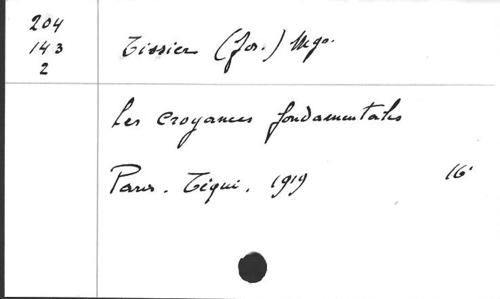 204
143
2
Tissier (Jos.) Mgr.
Les croyances fondamentales
Paris. Téqui. 1919 16°